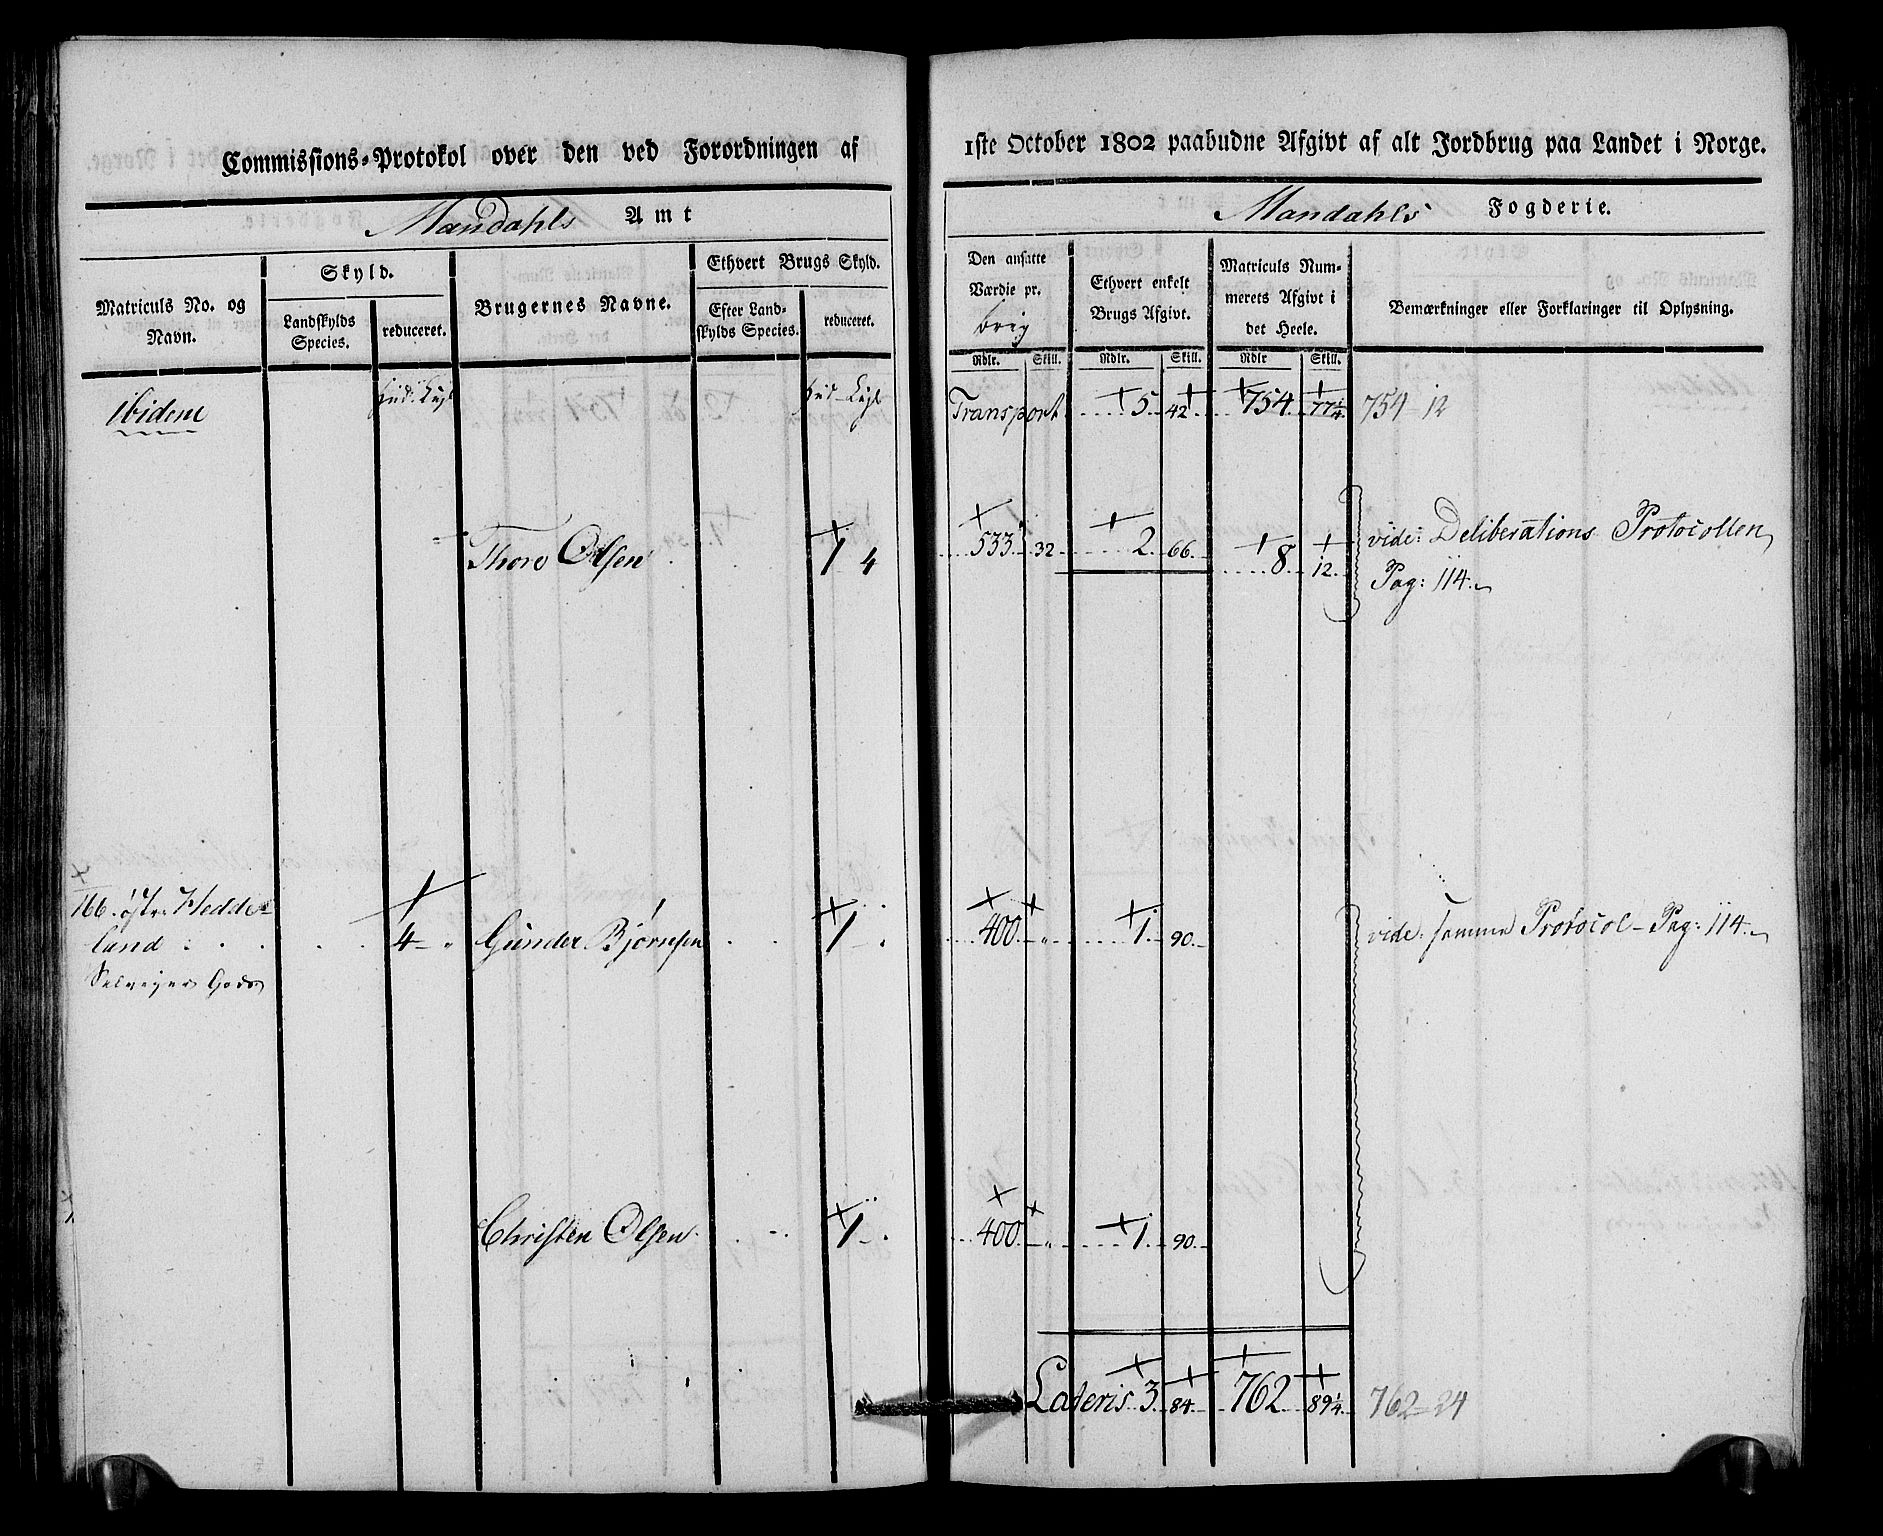 Commissions-Protokol over den ved Forordningen af 1ste October 1802 paabudne Afgivt af alt Jordbrug paa Landet i Norge.
Mandahls Amt
Mandahls Fogderie.
Matriculs No. og Navn.
Skyld.
Landskylds Species.
reduceret.
Brugernes Navne.
Ethvert Brugs Skyld.
Efter Landskylds Species.
reduceret.
Den ansatte Værdie pr.
Ethvert enkelt Brugs Afgivt.
Matriculs Nummerets Afgivt i det Heele.
Bemærkninger eller Forklaringer til Oplysning.
Rdlr. Skill. Rdlr. Skill. Rdlr Skill.
Ibidem
Transport 5. 42 754. 77 1/4. 754 12
Thore Olsen 1 4 533. 32 2. 66. 8. 12. vide: Deliberations Protocollen
Pag: 114.
166. østre Hedde-
land : 4 - " Gunder Bjørnsen 1 - . 400 " 1. 90. vide. samme Protocol - Pag: 114.
Selveyer Gods
Christen Olsen 1 - . 400 " 1. 90.
Lateris 3. 84. 762 89 1/4. 762-24